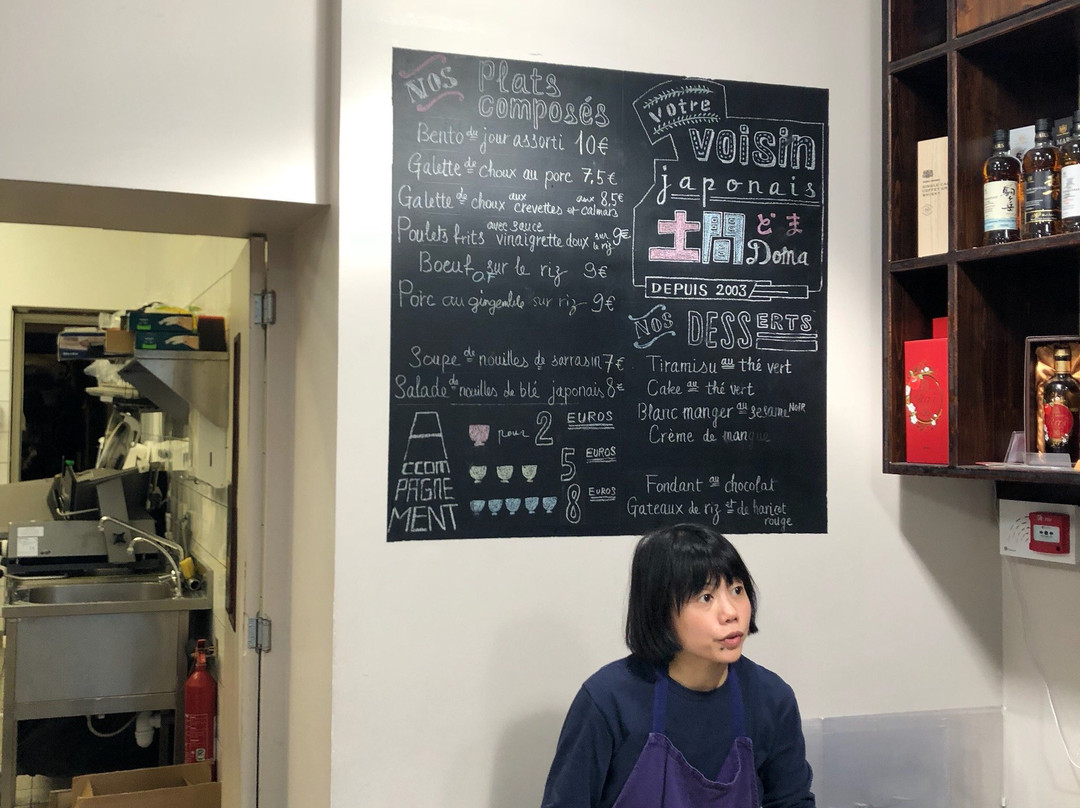 NOS Plats composés
Bento du jour assorti 10€
Galette de choux au porc 7,5€
Galette de choux aux crevettes et calmars 8,5€
Poulets frits avec sauce vinaigrette doux sur le riz 9€
Boeuf sur le riz 9€
Porc au gingembre sur riz 9€
Soupe de nouilles de sarrasin 7€
Salade de nouilles de blé japonais 8€
ACCOMPAGNEMENT
pour 2 EUROS
5 EUROS
8 EUROS
votre
voisin
japonais
土間 どま
Doma
DEPUIS 2003
NOS DESSERTS
Tiramisu au thé vert
Cake au thé vert
Blanc manger au sesame NOIR
Crème de mangue
Fondant au chocolat
Gateaux de riz et de haricot
rouge